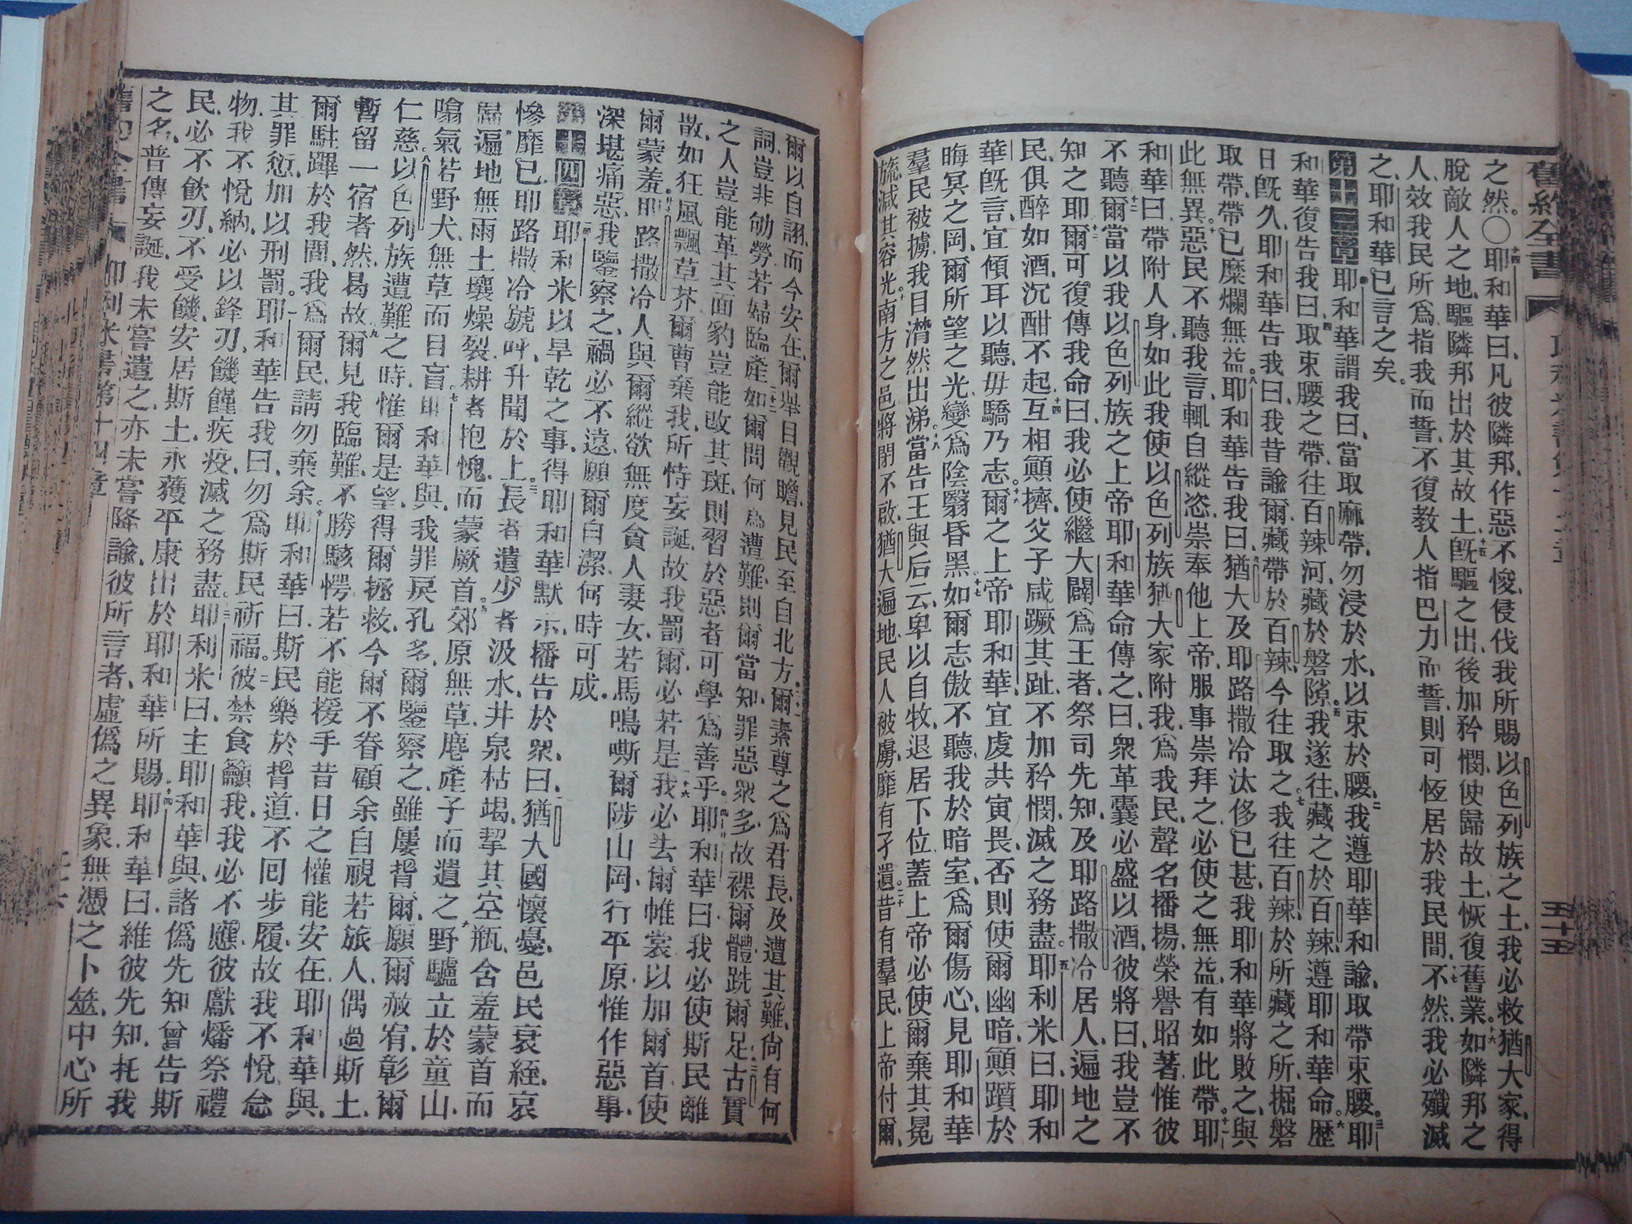 舊約全書
五十五
之然。〇耶和華曰、凡彼隣邦、作惡不悛、侵伐我所賜以色列族之土、我必救猶大家、得
脫敵人之地、驅隣邦出於其故土、旣驅之出、後加矜憫、使歸故土、恢復舊業、如隣邦之
人、效我民所爲、指我而誓、不復教人指巴力而誓、則可恆居於我民間、不然、我必殲滅
之、耶和華已言之矣。
第十三章 耶和華謂我曰、當取麻帶、勿浸於水、以束於腰、我遵耶華和諭、取帶束腰。耶
和華復告我曰、取束腰之帶、往百辣河、藏於磐隙、我遂往藏之於百辣、遵耶和華命、歷
日旣久、耶和華告我曰、我昔諭爾藏帶於百辣、今往取之、我往百辣、於所藏之所、掘磐
取帶、帶已糜爛無益、耶和華告我曰、猶大及耶路撒冷汰侈已甚、我耶和華將敗之、與
此無異、惡民不聽我言、輒自縱恣、崇奉他上帝、服事崇拜之、必使之無益、有如此帶、耶
和華曰、帶附人身、如此我使以色列族、猶大家附我、爲我民、聲名播揚、榮譽昭著、惟彼
不聽、爾當以我以色列族之上帝耶和華命傳之、曰、衆革囊必盛以酒、彼將曰、我豈不
知之耶、爾可復傳我命曰、我必使繼大闢爲王者、祭司先知、及耶路撒冷居人、遍地之
民、俱醉如酒、沉酣不起、互相顚擠、父子咸蹶其趾、不加矜憫、滅之務盡、耶利米曰、耶和
華旣言、宜傾耳以聽、毋驕乃志、爾之上帝耶和華、宜虔共寅畏、否則使爾幽暗、顚躓於
晦冥之岡、爾所望之光、變爲陰翳昏黑、如爾志傲不聽、我於暗室、爲爾傷心、見耶和華
羣民被擄、我目潸然出涕、當告王與后云、卑以自牧、退居下位、蓋上帝必使爾棄其冕
旒、減其容光、南方之邑將閉不啟、猶大遍地民人被虜、靡有孑遺、昔有羣民、上帝付爾、
爾以自詡、而今安在、爾舉目觀瞻、見民至自北方、爾素尊之爲君長、及遭其難、尙有何
詞、豈非劬勞若婦臨產、如爾問何爲遭難、則爾當知罪惡衆多、故裸爾體、跣爾足、古實
之人、豈能革其面、豹豈能改其斑、則習於惡者、可學爲善乎、耶和華曰、我必使斯民離
散、如狂風飄草芥、爾曹棄我、所恃妄誕、故我罰爾、必若是、我必去爾帷裳、以加爾首、使
爾蒙羞、耶路撒冷人與爾縱欲無度、貪人妻女、若馬鳴嘶、爾陟山岡、行平原、惟作惡事、
深堪痛惡、我鑒察之、禍必不遠、願爾自潔、何時可成。
第十四章 耶利米以旱乾之事、得耶和華默示、播告於衆曰、猶大國懷憂、邑民衰絰、哀
慘靡已、耶路撒冷號呼、升聞於上、長者遣少者汲水、井泉枯竭、挈其空瓶、含羞蒙首而
歸、遍地無雨、土壤燥裂、耕者抱愧、而蒙厥首、郊原無草、麀產子而遺之、野驢立於童山、
噏氣若野犬、無草而目盲、耶和華與、我罪戾孔多、爾鑒察之、雖屢背爾、願爾赦宥、彰爾
仁慈、以色列族遭難之時、惟爾是望、得爾拯救、今爾不眷顧余、自視若旅人、偶過斯土、
暫留一宿者然、曷故、爾見我臨難、不勝駭愕、若不能援手、昔日之權能安在、耶和華與、
爾駐蹕於我間、我爲爾民、請勿棄余、耶和華曰、斯民樂於背道、不囘步履、故我不悅、念
其罪愆、加以刑罰、耶和華告我曰、勿爲斯民祈福、彼禁食籲我、我必不應、彼獻燔祭禮
物、我不悅納、必以鋒刃饑饉疾疫、滅之務盡、耶利米曰、主耶和華與、諸僞先知曾告斯
民、必不飲刃、不受饑、安居斯土、永獲平康、出於耶和華所賜、耶和華曰、維彼先知、托我
之名、普傳妄誕、我未嘗遣之、亦未嘗降諭、彼所言者、虛僞之異象、無憑之卜筮、中心所
耶利米書第十四章